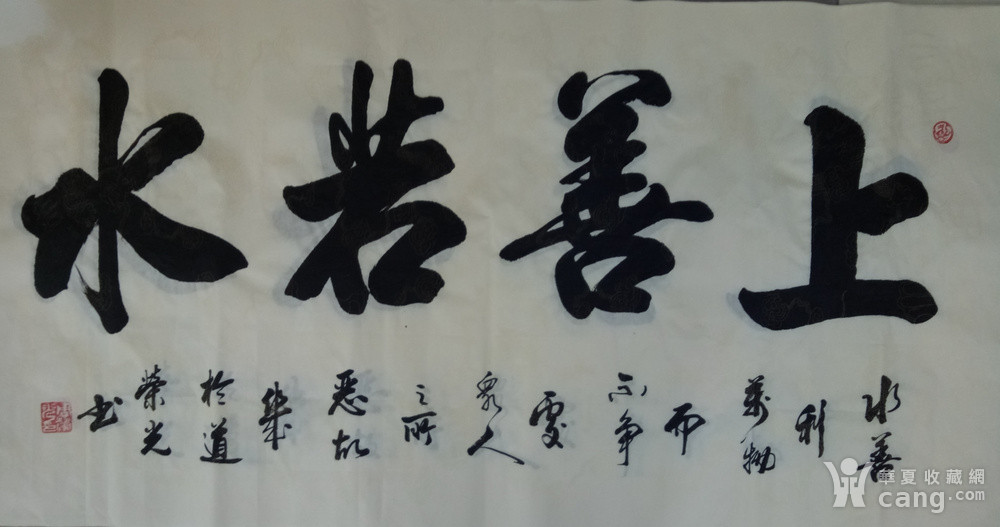 上善若水
水善
利
萬物
而
不争
處
衆人
之所
惡故
幾
於道
榮光
书
華夏收藏網
cang.com